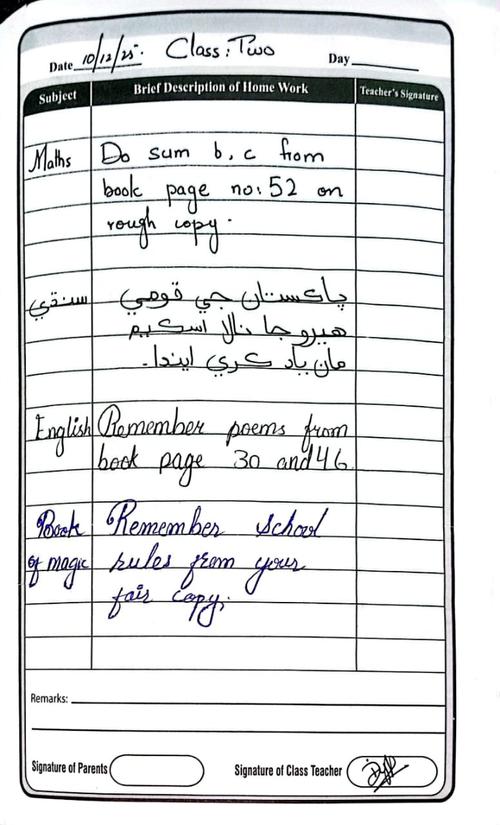 Date 10/12/25. Class: Two Day
Subject Brief Description of Home Work Teacher's Signature
Maths Do sum b, c from
book page no: 52 on
rough copy.
سنڌي پاڪستان جي قومي
هيرو جا نالا اسڪيم
مان ياد ڪري ايندا.
English Remember poems from
book page 30 and 46
Book Remember school
of magic rules from your
fair copy.
Remarks:
Signature of Parents Signature of Class Teacher